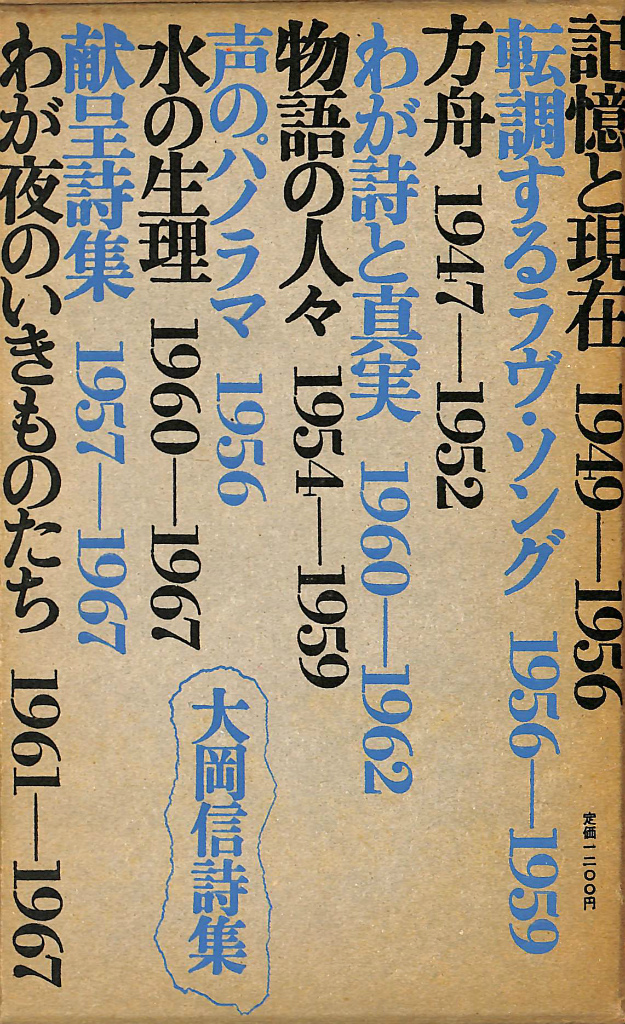 記憶と現在 1949—1956
転調するラヴ・ソング 1956—1959
方舟 1947—1952
わが詩と真実 1960—1962
物語の人々 1954—1959
声のパノラマ 1956
水の生理 1960—1967
献呈詩集 1957—1967
わが夜のいきものたち 1961—1967
大岡信詩集
定価一二〇〇円